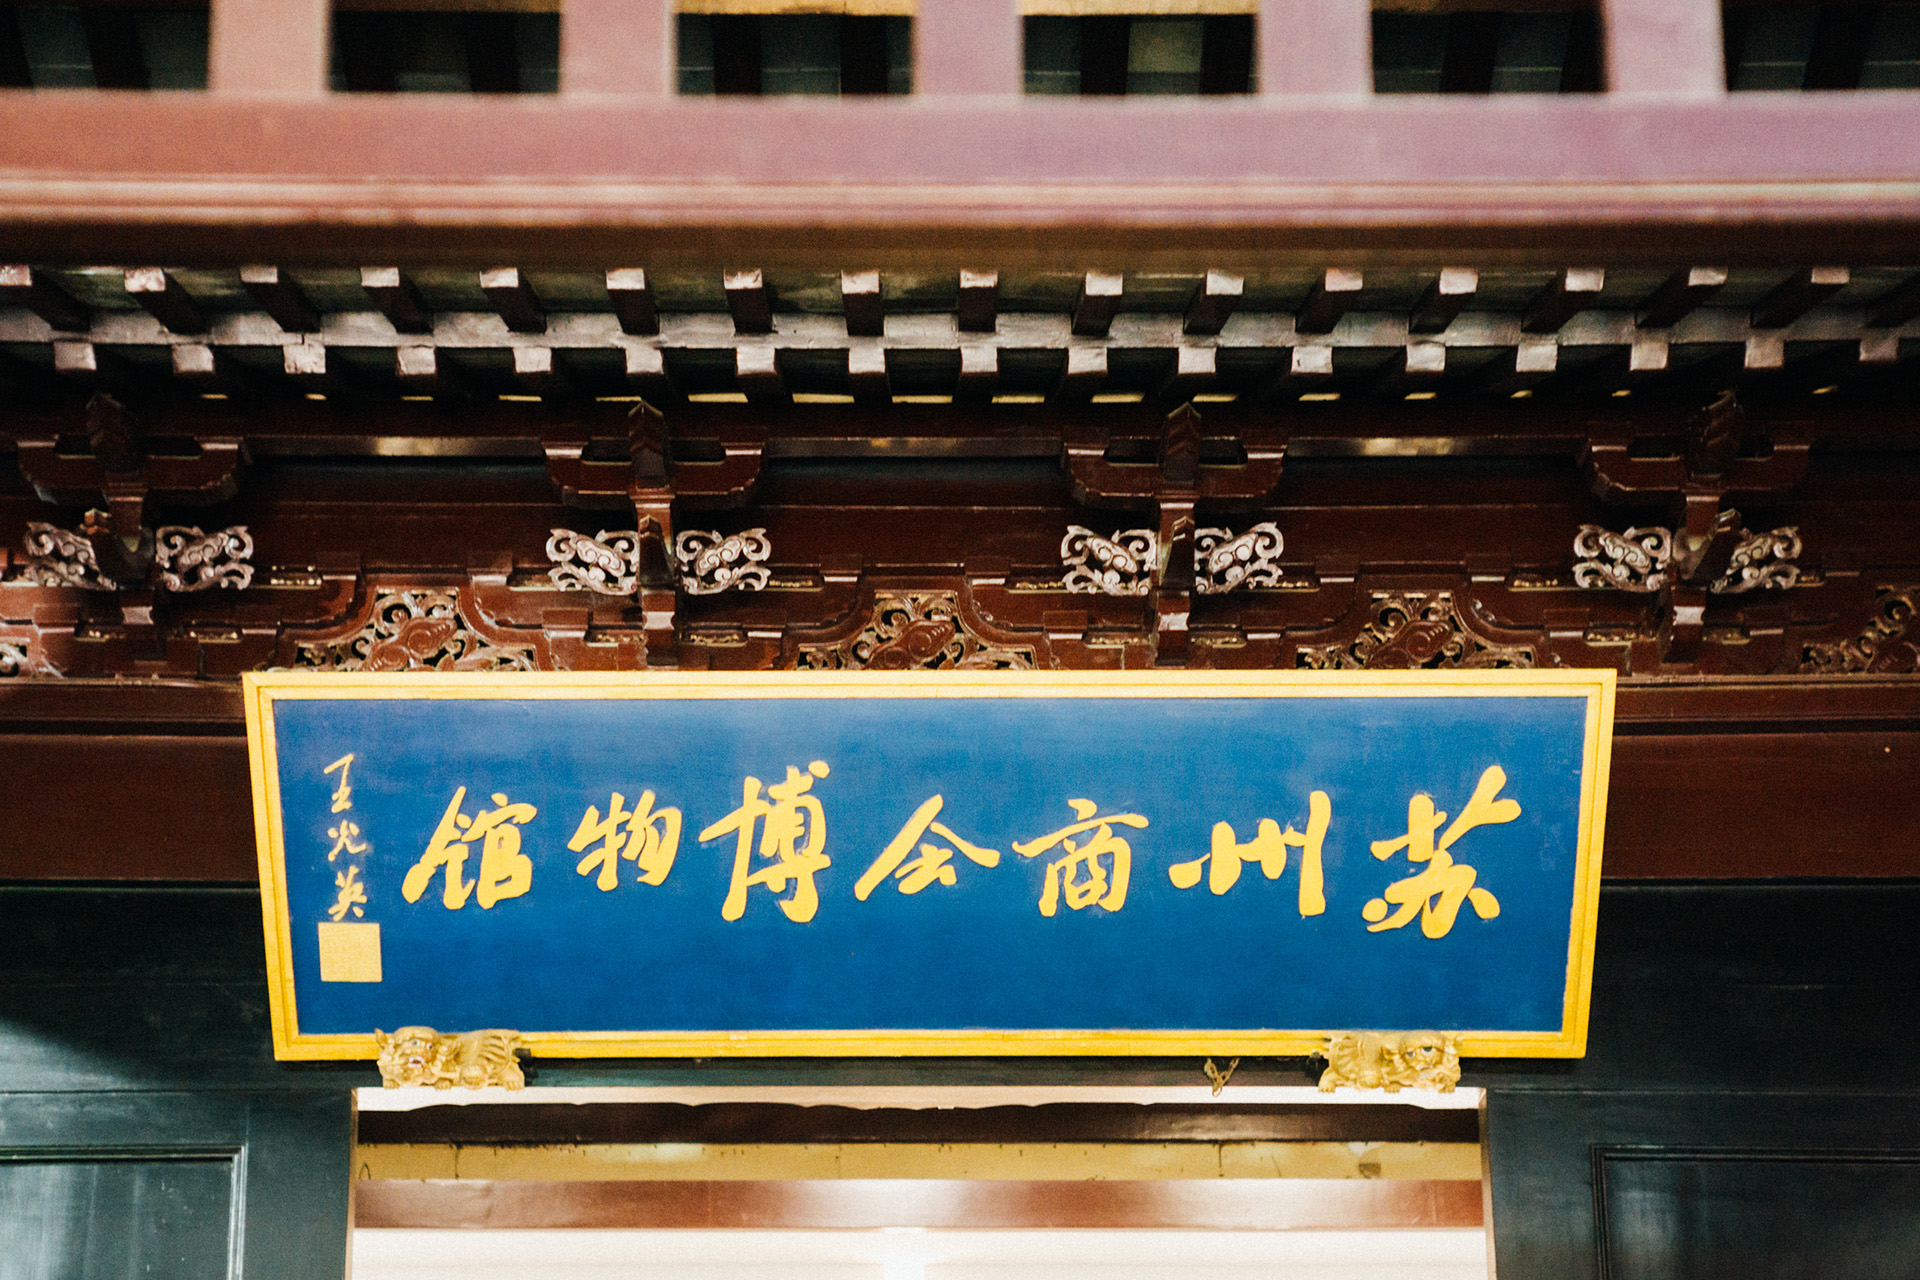 苏州商会博物馆
王光英